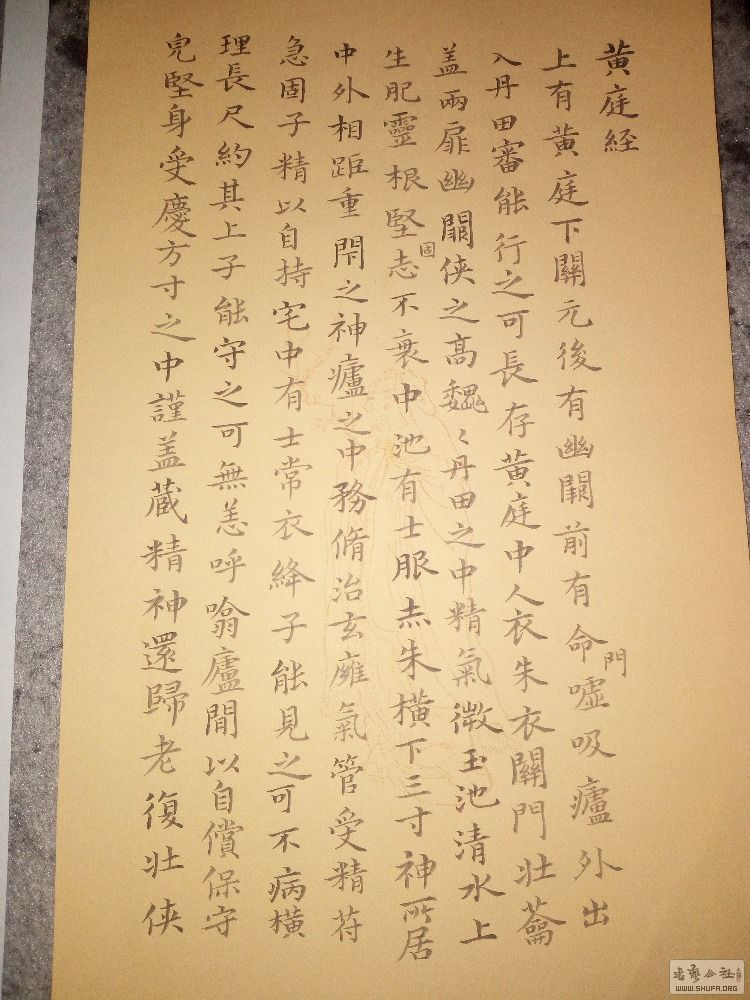 黄庭経
上有黄庭下關元後有幽闕前有命門嘘吸廬外出
入丹田審能行之可長存黄庭中人衣朱衣關門壮蘥
盖兩扉幽闕侠之高魏〻丹田之中精氣微玉池清水上
生肥靈根堅固志不衰中池有士服赤朱横下三寸神所居
中外相距重閇之神廬之中務脩治玄癰氣管受精苻
急固子精以自持宅中有士常衣絳子能見之可不病横
理長尺約其上子能守之可無恙呼噏廬間以自償保守
皃堅身受慶方寸之中謹盖蔵精神還歸老復壮侠
書藝公社
WWW.SHUFA.ORG